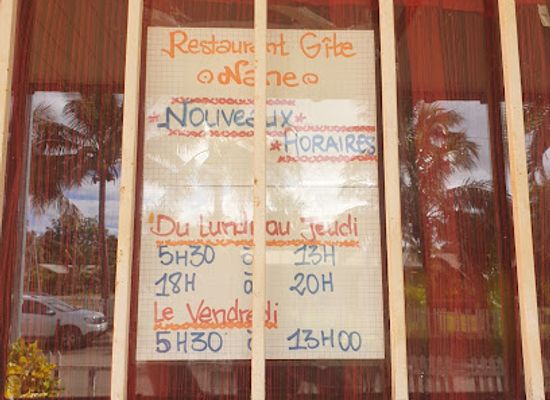 Restaurant Gîte
Nane
Nouveaux
Horaires
Du Lundi au Jeudi
5H30 à 13H
18H à 20H
Le Vendredi
5H30 à 13H00